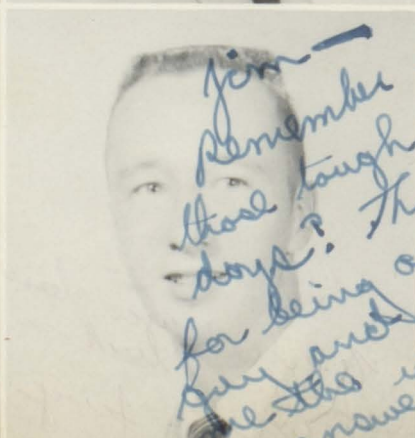 Jim —
Remember
those tough
days? Th
for being a
guy and
the